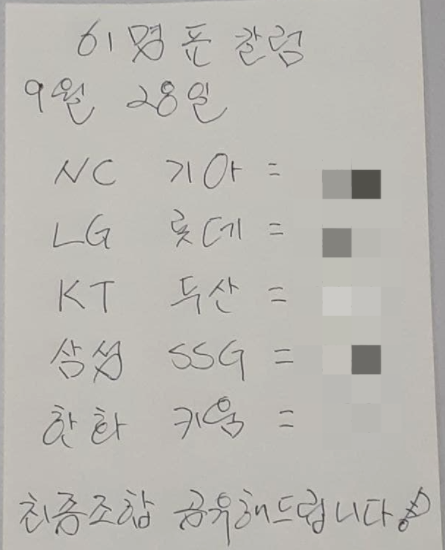 61명픈 칼럼
9월 28일
NC 기아 =
LG 롯데 =
KT 두산 =
삼성 SSG =
한화 키움 =
최종조합 공유해드립니다